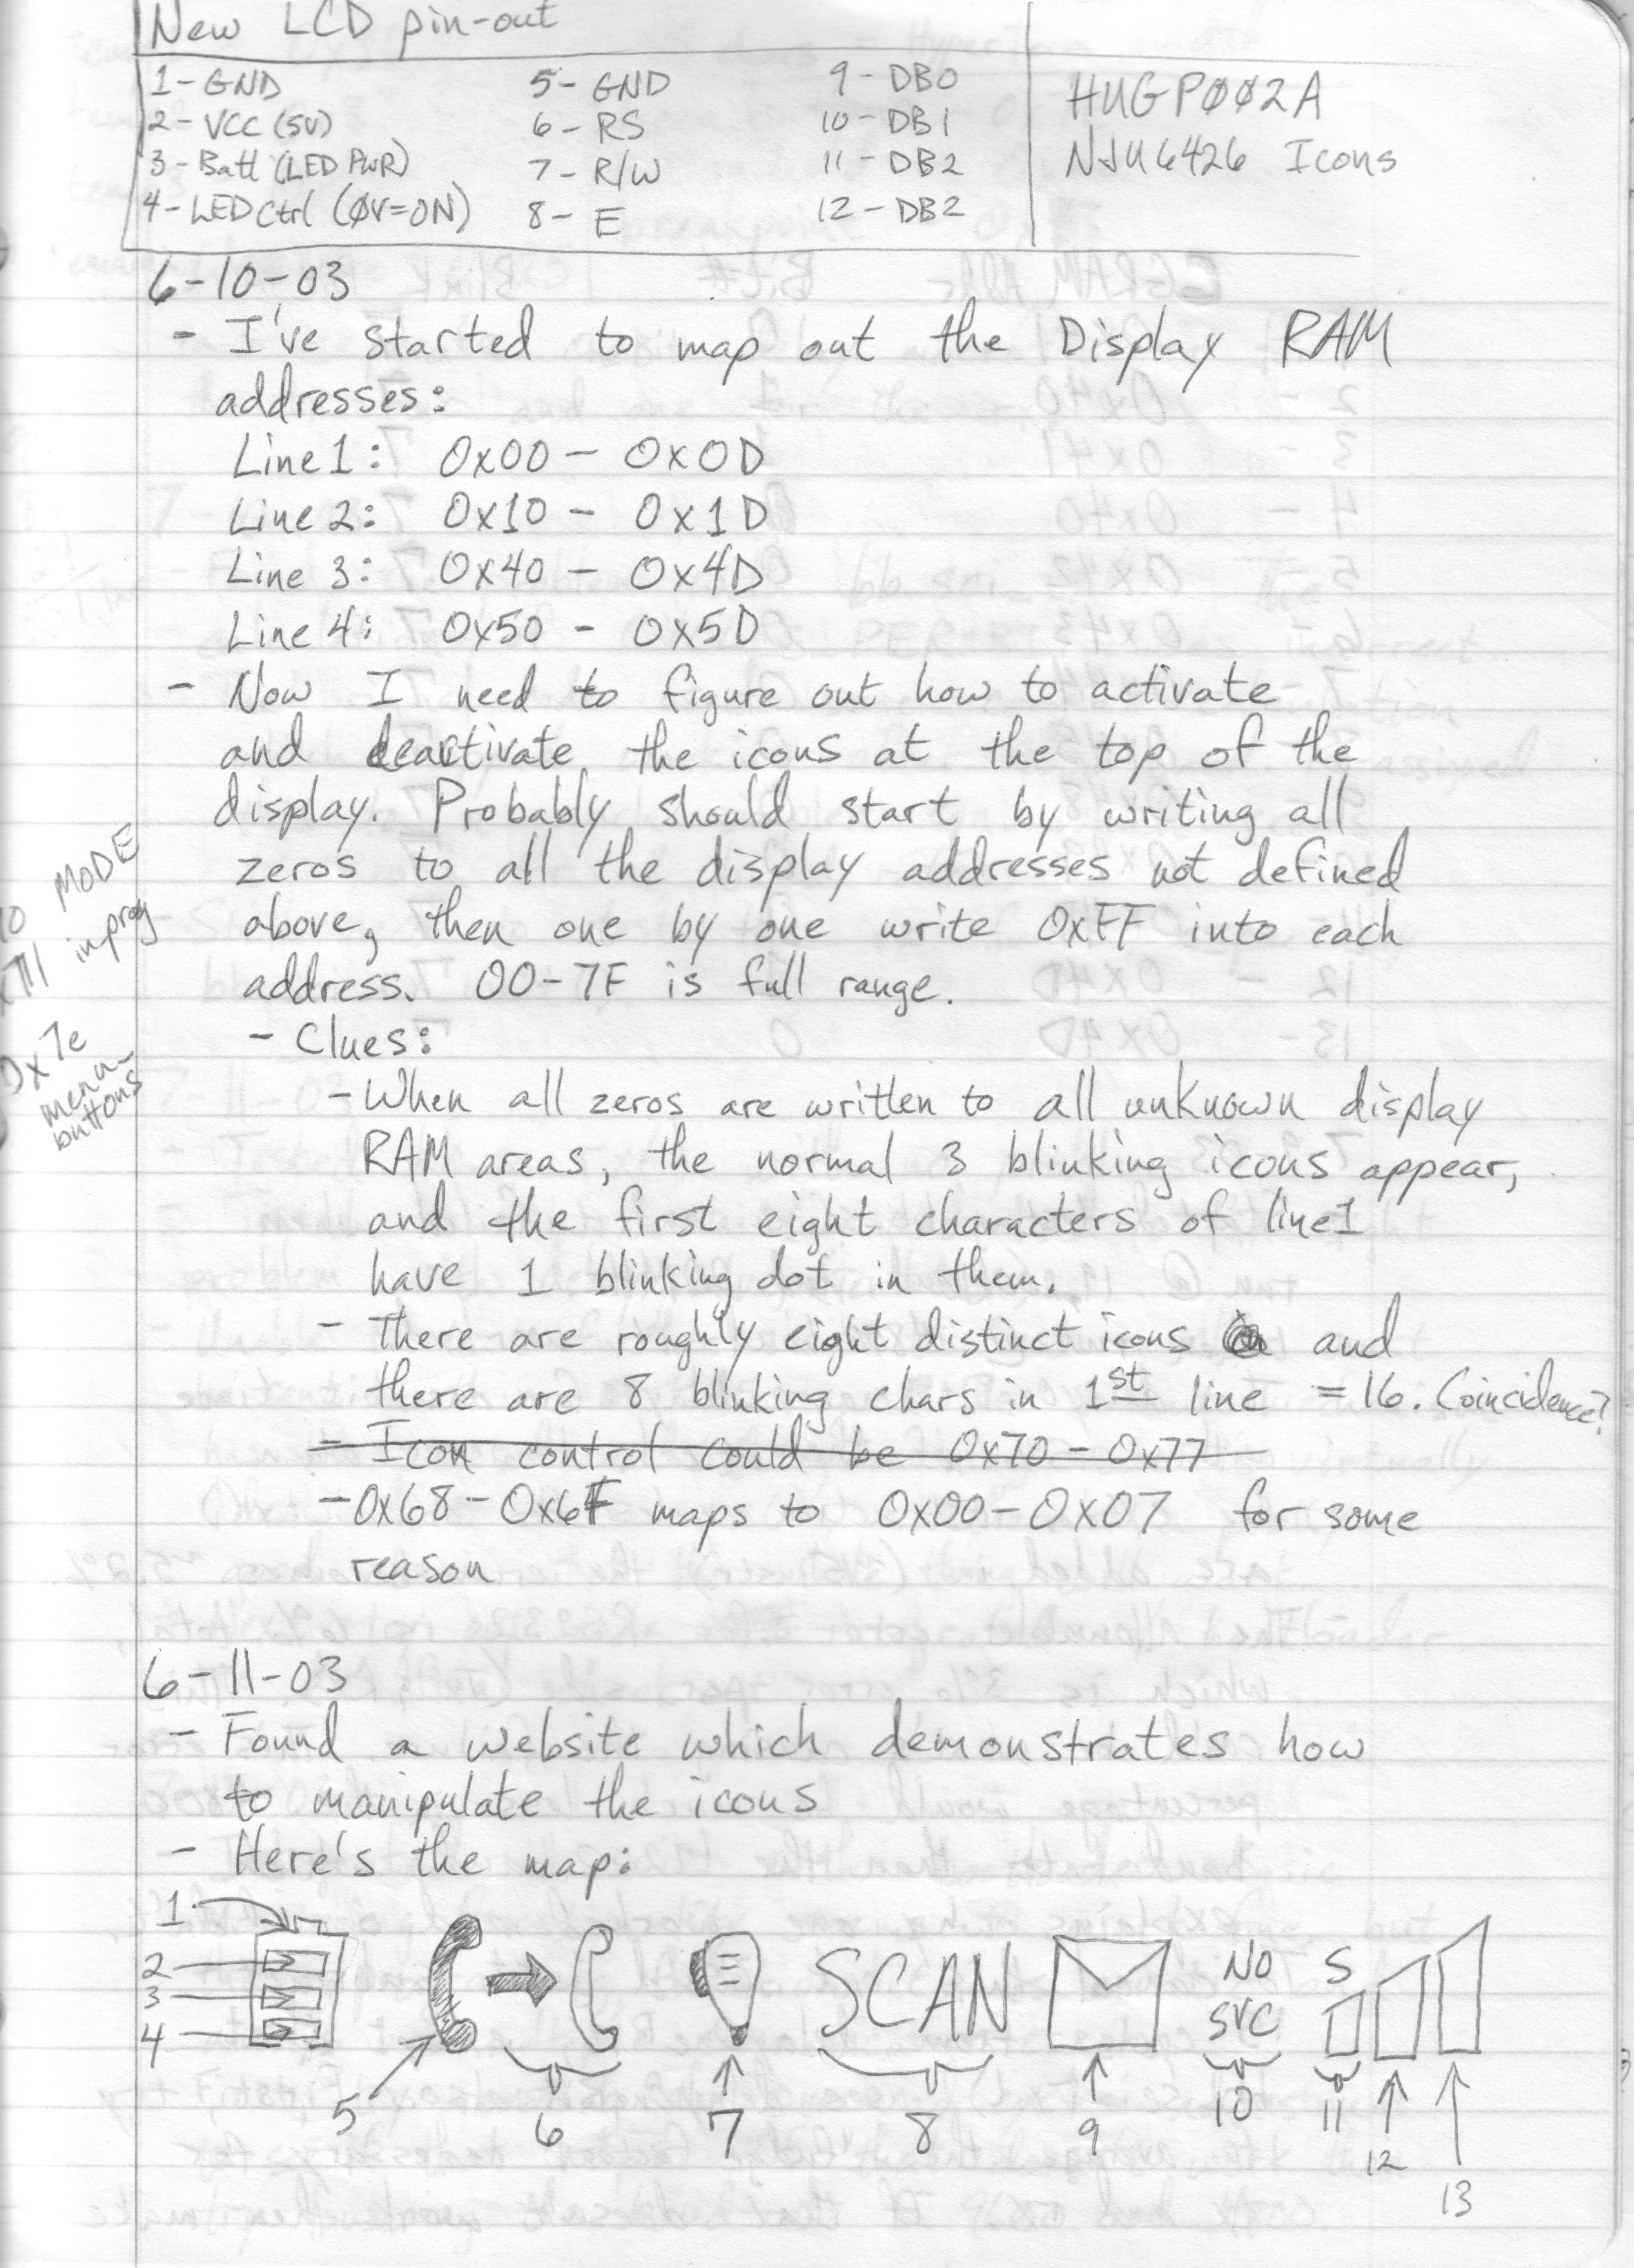 New LCD pin-out
1- GND 5- GND 9- DB0 HUGPØØ2A
2- VCC (5V) 6- RS 10- DB1 NJU6426 Icons
3- Batt (LED PWR) 7- R/W 11- DB2
4- LED Ctrl (ØV=ON) 8- E 12- DB2
6-10-03
- I've started to map out the Display RAM
addresses:
Line 1: 0x00 - 0x0D
Line 2: 0x10 - 0x1D
Line 3: 0x40 - 0x4D
Line 4: 0x50 - 0x5D
- Now I need to figure out how to activate
and deactivate the icons at the top of the
display. Probably should start by writing all
zeros to all the display addresses not defined
above, then one by one write 0xFF into each
address. 00-7F is full range.
MODE
in prog
0x7e
menu-
buttons
- Clues:
- When all zeros are written to all unknown display
RAM areas, the normal 3 blinking icons appear,
and the first eight characters of line1
have 1 blinking dot in them.
- There are roughly eight distinct icons and
there are 8 blinking chars in 1st line = 16. Coincidence?
- Icon control could be 0x70 - 0x77
- 0x68 - 0x6F maps to 0x00 - 0x07 for some
reason
6-11-03
- Found a website which demonstrates how
to manipulate the icons
- Here's the map:
1
2
3
4
SCAN NO SVC S
5 6 7 8 9 10 11 12 13